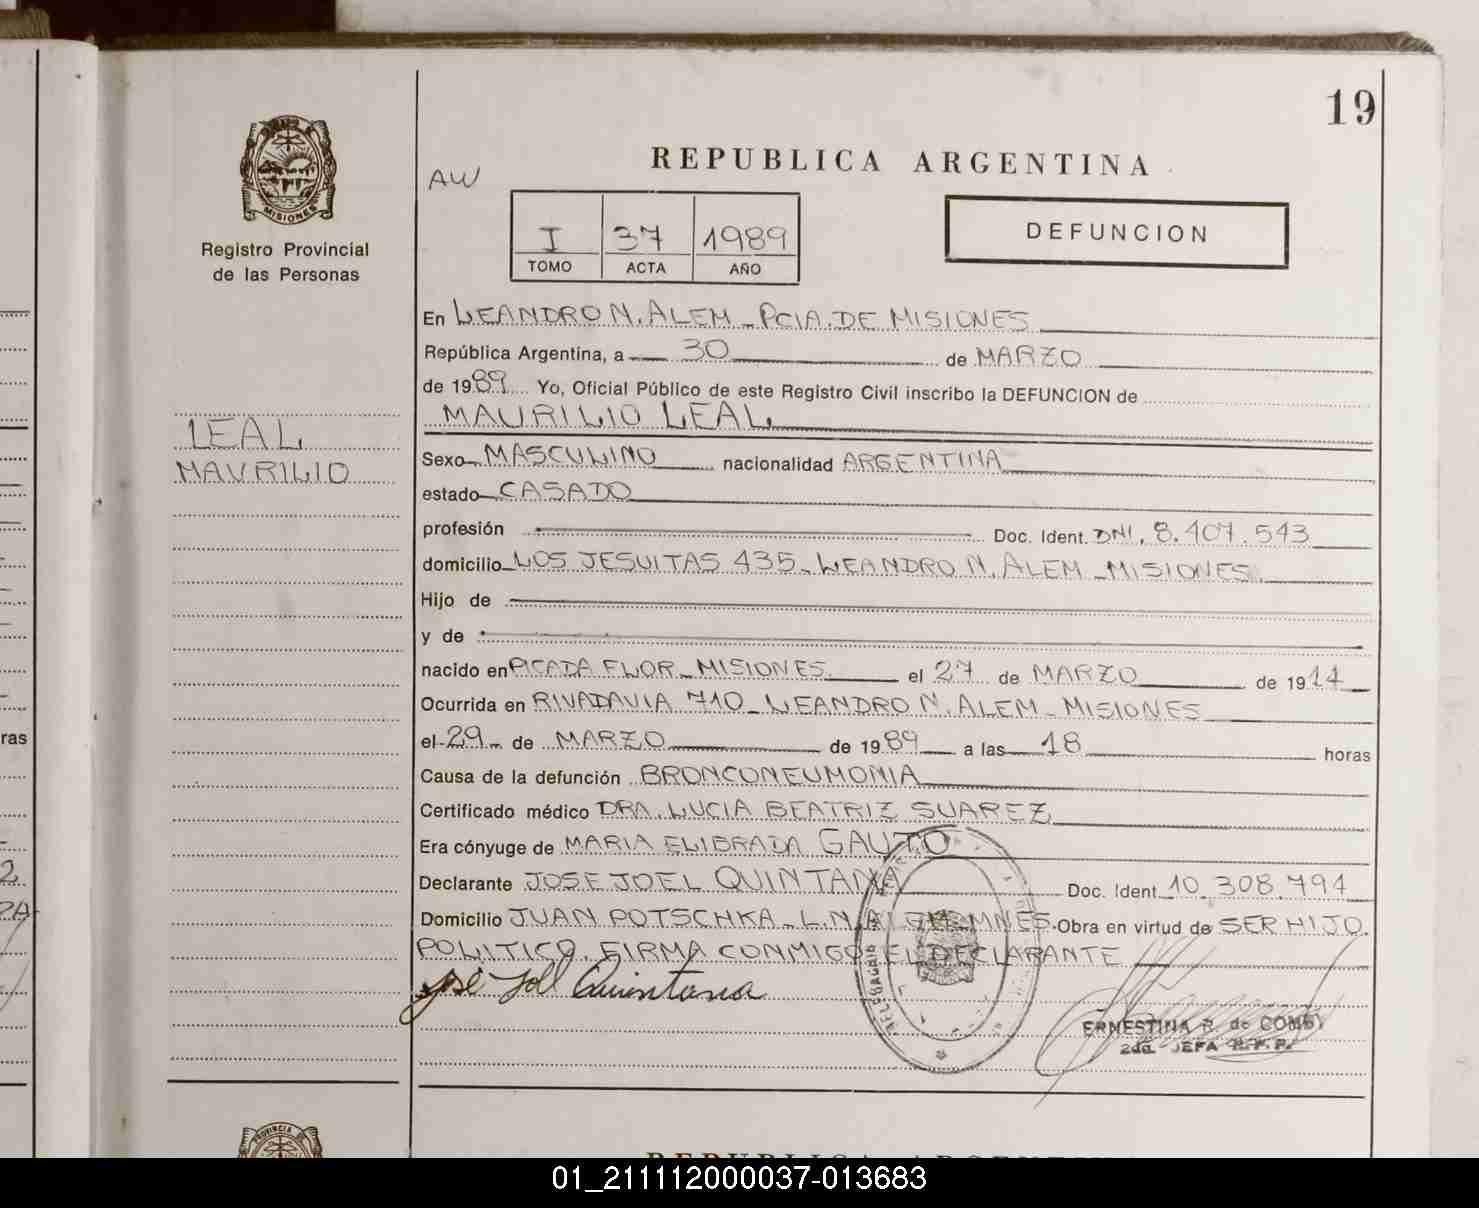 19
REPUBLICA ARGENTINA
AW
MISIONES
Registro Provincial
de las Personas
I 37 1989
TOMO ACTA AÑO
DEFUNCION
En LEANDRO N. ALEM - PCIA. DE MISIONES
República Argentina, a 30 de MARZO
de 1989 Yo, Oficial Público de este Registro Civil inscribo la DEFUNCION de
MAURILIO LEAL
LEAL
MAURILIO
Sexo MASCULINO nacionalidad ARGENTINA
estado CASADO
profesión Doc. Ident. DNI. 8.407.543
domicilio LOS JESUITAS 435 - LEANDRO N. ALEM - MISIONES
Hijo de
y de
nacido en PICADA FLOR - MISIONES el 27 de MARZO de 1914
Ocurrida en RIVADAVIA 710 - LEANDRO N. ALEM - MISIONES
el 29 de MARZO de 1989 a las 18 horas
Causa de la defunción BRONCONEUMONIA
Certificado médico DRA. LUCIA BEATRIZ SUAREZ
Era cónyuge de MARIA ELIBRADA GAUTO
Declarante JOSE JOEL QUINTANA Doc. Ident. 10.308.794
Domicilio JUAN POTSCHKA - L.N. ALEM - MNES. Obra en virtud de SER HIJO
POLITICO. FIRMA CONMIGO EL DECLARANTE
José Joel Quintana
ERNESTINA R. de COMBY
2da. JEFA R.P.P.
ras
PROVINCIA DE
REPUBLICA ARGENTINA
01_211112000037-013683